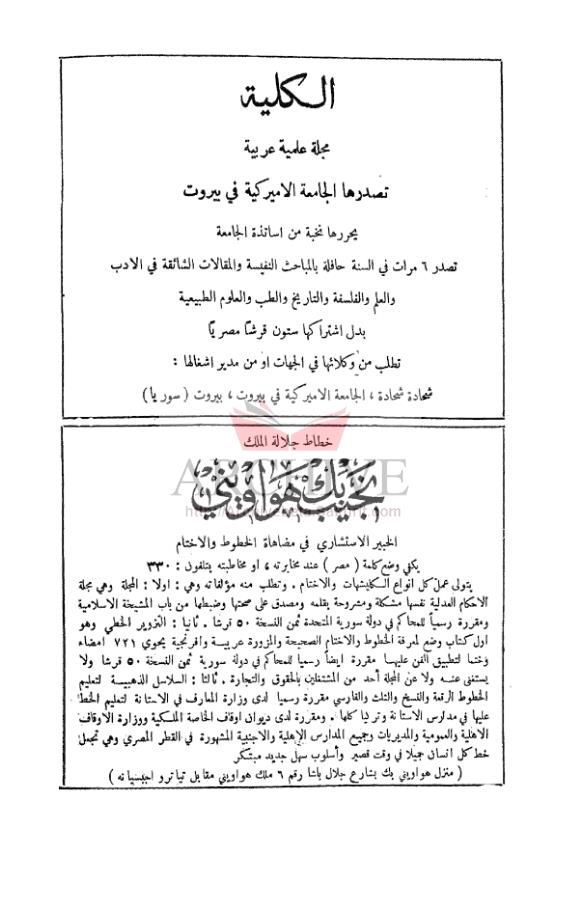 الكلية
مجلة علمية عربية
تصدرها الجامعة الاميركية في بيروت
يحررها نخبة من اساتذة الجامعة
تصدر ٦ مرات في السنة حافلة بالمباحث النفيسة والمقالات الشائقة في الادب
والعلم والفلسفة والتاريخ والطب والعلوم الطبيعية
بدل اشتراكها ستون قرشًا مصريًا
تطلب من وكلائها في الجهات او من مدير اشغالها :
شحادة شحادة ، الجامعة الاميركية في بيروت ، بيروت ( سوريا )
خطاط جلالة الملك
نجيب بك هواويني
ARCHIVE
الخبير الاستشاري في مضاهاة الخطوط والاختام
يكفي وضع كلمة ( مصر ) عند مخابرته ، او مخاطبته بتلفون : ٣٣٠
يتولى عمل كل انواع الكليشهات والاختام . وتطلب منه مؤلفاته وهي : اولا : المجلة وهي مجلة
الاحكام العدلية نفسها مشكلة ومشروحة بقلمه ومصدق على صحتها وضبطها من باب المشيخة الاسلامية
ومقررة رسمياً للمحاكم في دولة سورية المتحدة ثمن النسخة ٥٠ قرشا . ثانيا : التزوير الخطي وهو
اول كتاب وضع لمعرفة الخطوط والاختام الصحيحة والمزورة عربية وافرنجية يحوي ٧٢١ امضاء
وختما لتطبيق الفن عليها مقررة ايضاً رسميا للمحاكم في دولة سورية ثمن النسخة ٥٠ قرشا ولا
يستغنى عنه ولا عن المجلة أحد من المشتغلين بالحقوق والتجارة . ثالثا : السلاسل الذهبية لتعليم
الخطوط الرقعة والنسخ والثلث والفارسي مقررة رسميا لدى وزارة المعارف في الاستانة لتعليم الخط
عليها في مدارس الاستانة وتركيا كلها . ومقررة لدى ديوان اوقاف الخاصة الملكية ووزارة الاوقاف
الاهلية والعمومية والمديريات وجميع المدارس الاهلية والاجنبية المشهورة في القطر المصري وهي تجعل
خط كل انسان جميلا في وقت قصير وأسلوب سهل جديد مبتكر
( منزل هواويني بك بشارع جلال باشا رقم ٦ ملك هواويني مقابل تياترو اجبسيانه )